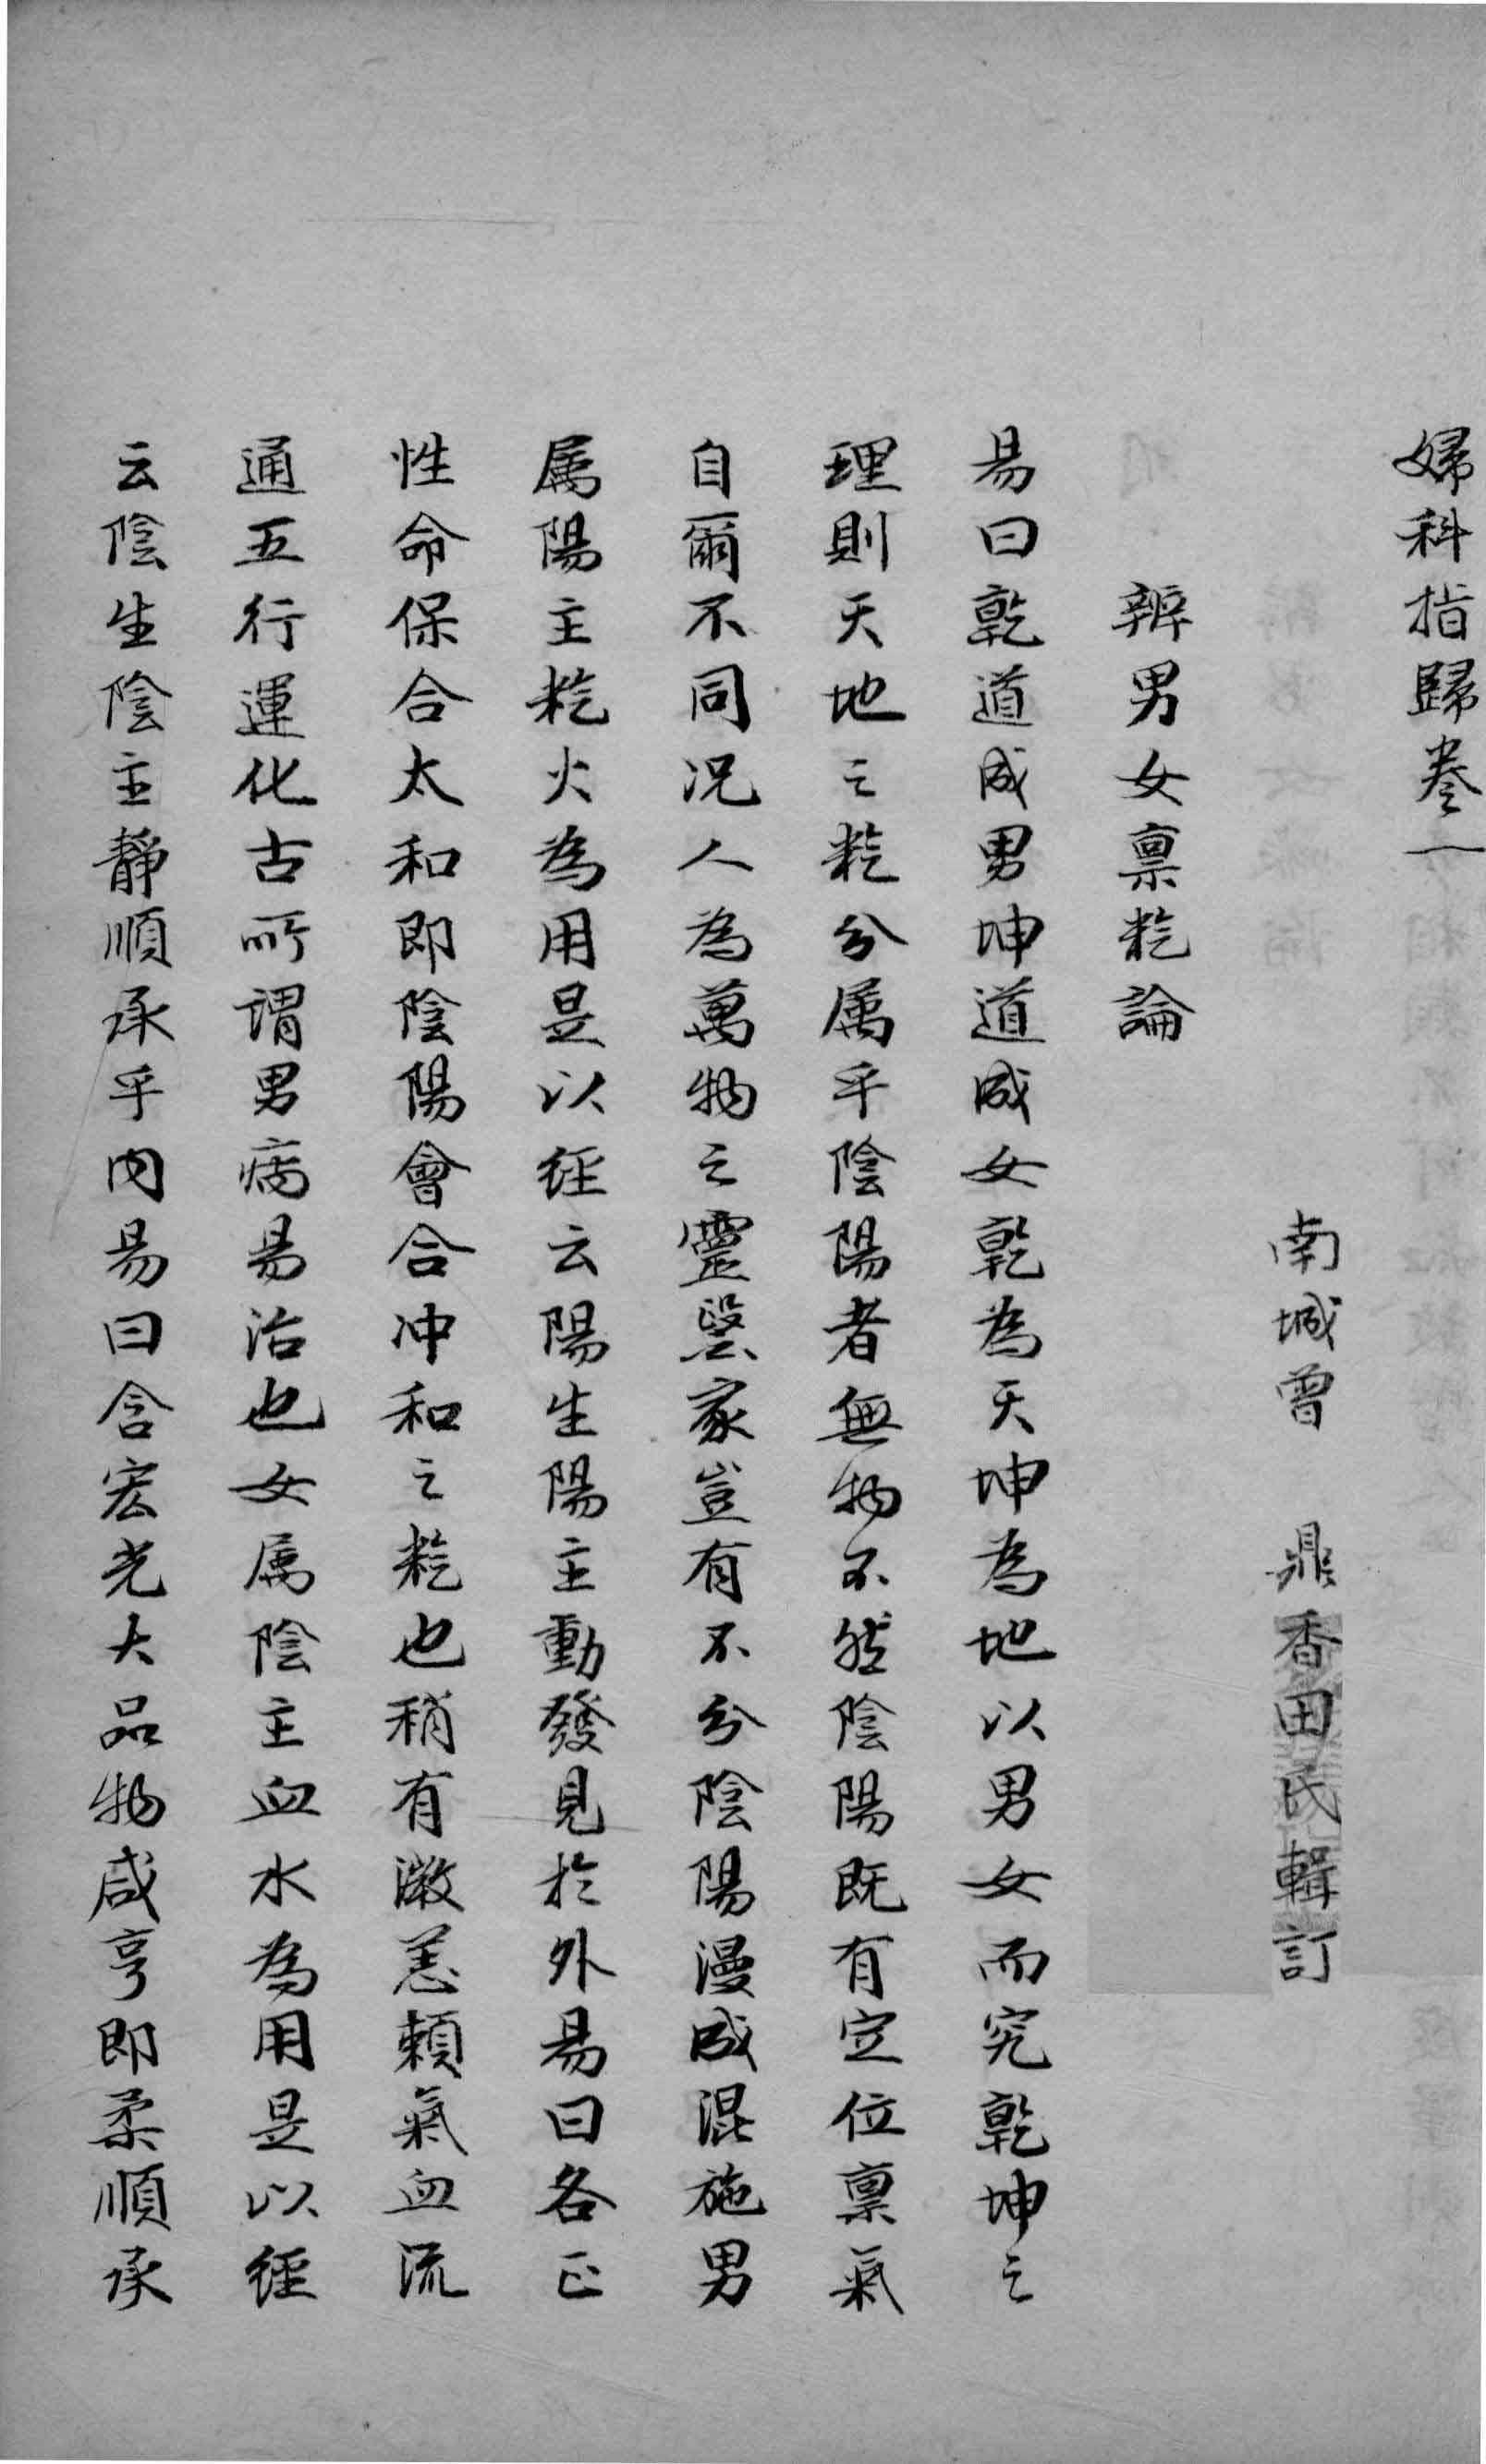 婦科指歸卷一
南城曾　鼎香田氏輯訂
辨男女禀粇論
易曰乾道成男坤道成女乾為天坤為地以男女而究乾坤之
理則天地之粇分属乎陰陽者無物不然陰陽既有定位禀氣
自爾不同况人為萬物之靈毉家豈有不分陰陽漫成混施男
属陽主粇火為用是以經云陽生陽主動發見於外易曰各正
性命保合太和即陰陽會合冲和之粇也稍有微恙頼氣血流
通五行運化古所謂男病易治也女属陰主血水為用是以經
云陰生陰主靜順承乎内易曰含宏光大品物咸亨即柔順承